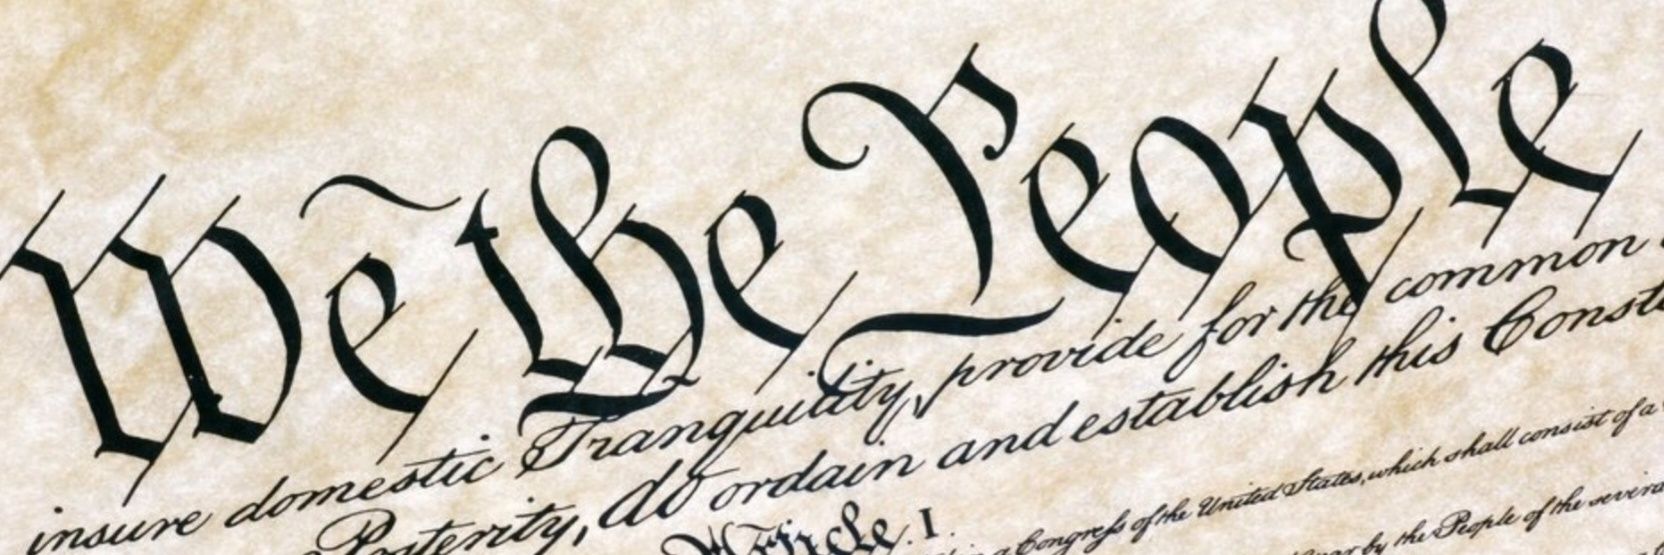 We the People
insure domestic Tranquility, provide for the common
Posterity, do ordain and establish this
Article. I.
a Congress of the United States, which shall consist of a
by the People of the